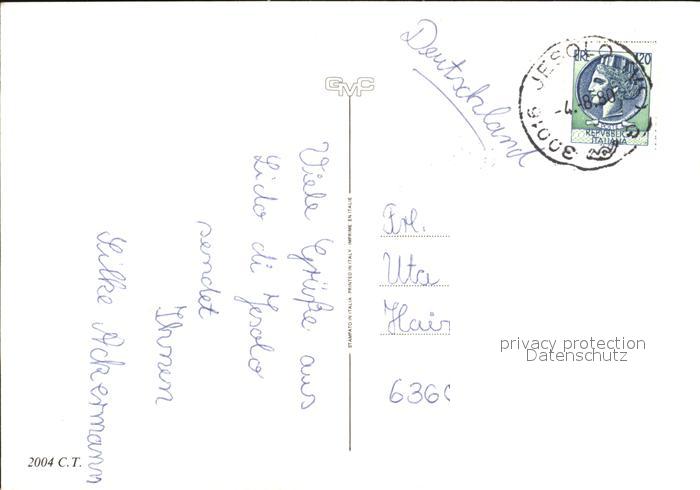 Viele Grüße aus
Lido di Jesolo
sendet
Ihnen
Silke Ackermann
2004 C.T.
GMC
STAMPATO IN ITALIA PRINTED IN ITALY IMPRIMÉ EN ITALIE
Deutschland
30016 JESOLO
-4.-8.80
LIRE 120
REPVBBLICA
ITALIANA
Frl.
Uta
Hair
636
privacy protection
Datenschutz